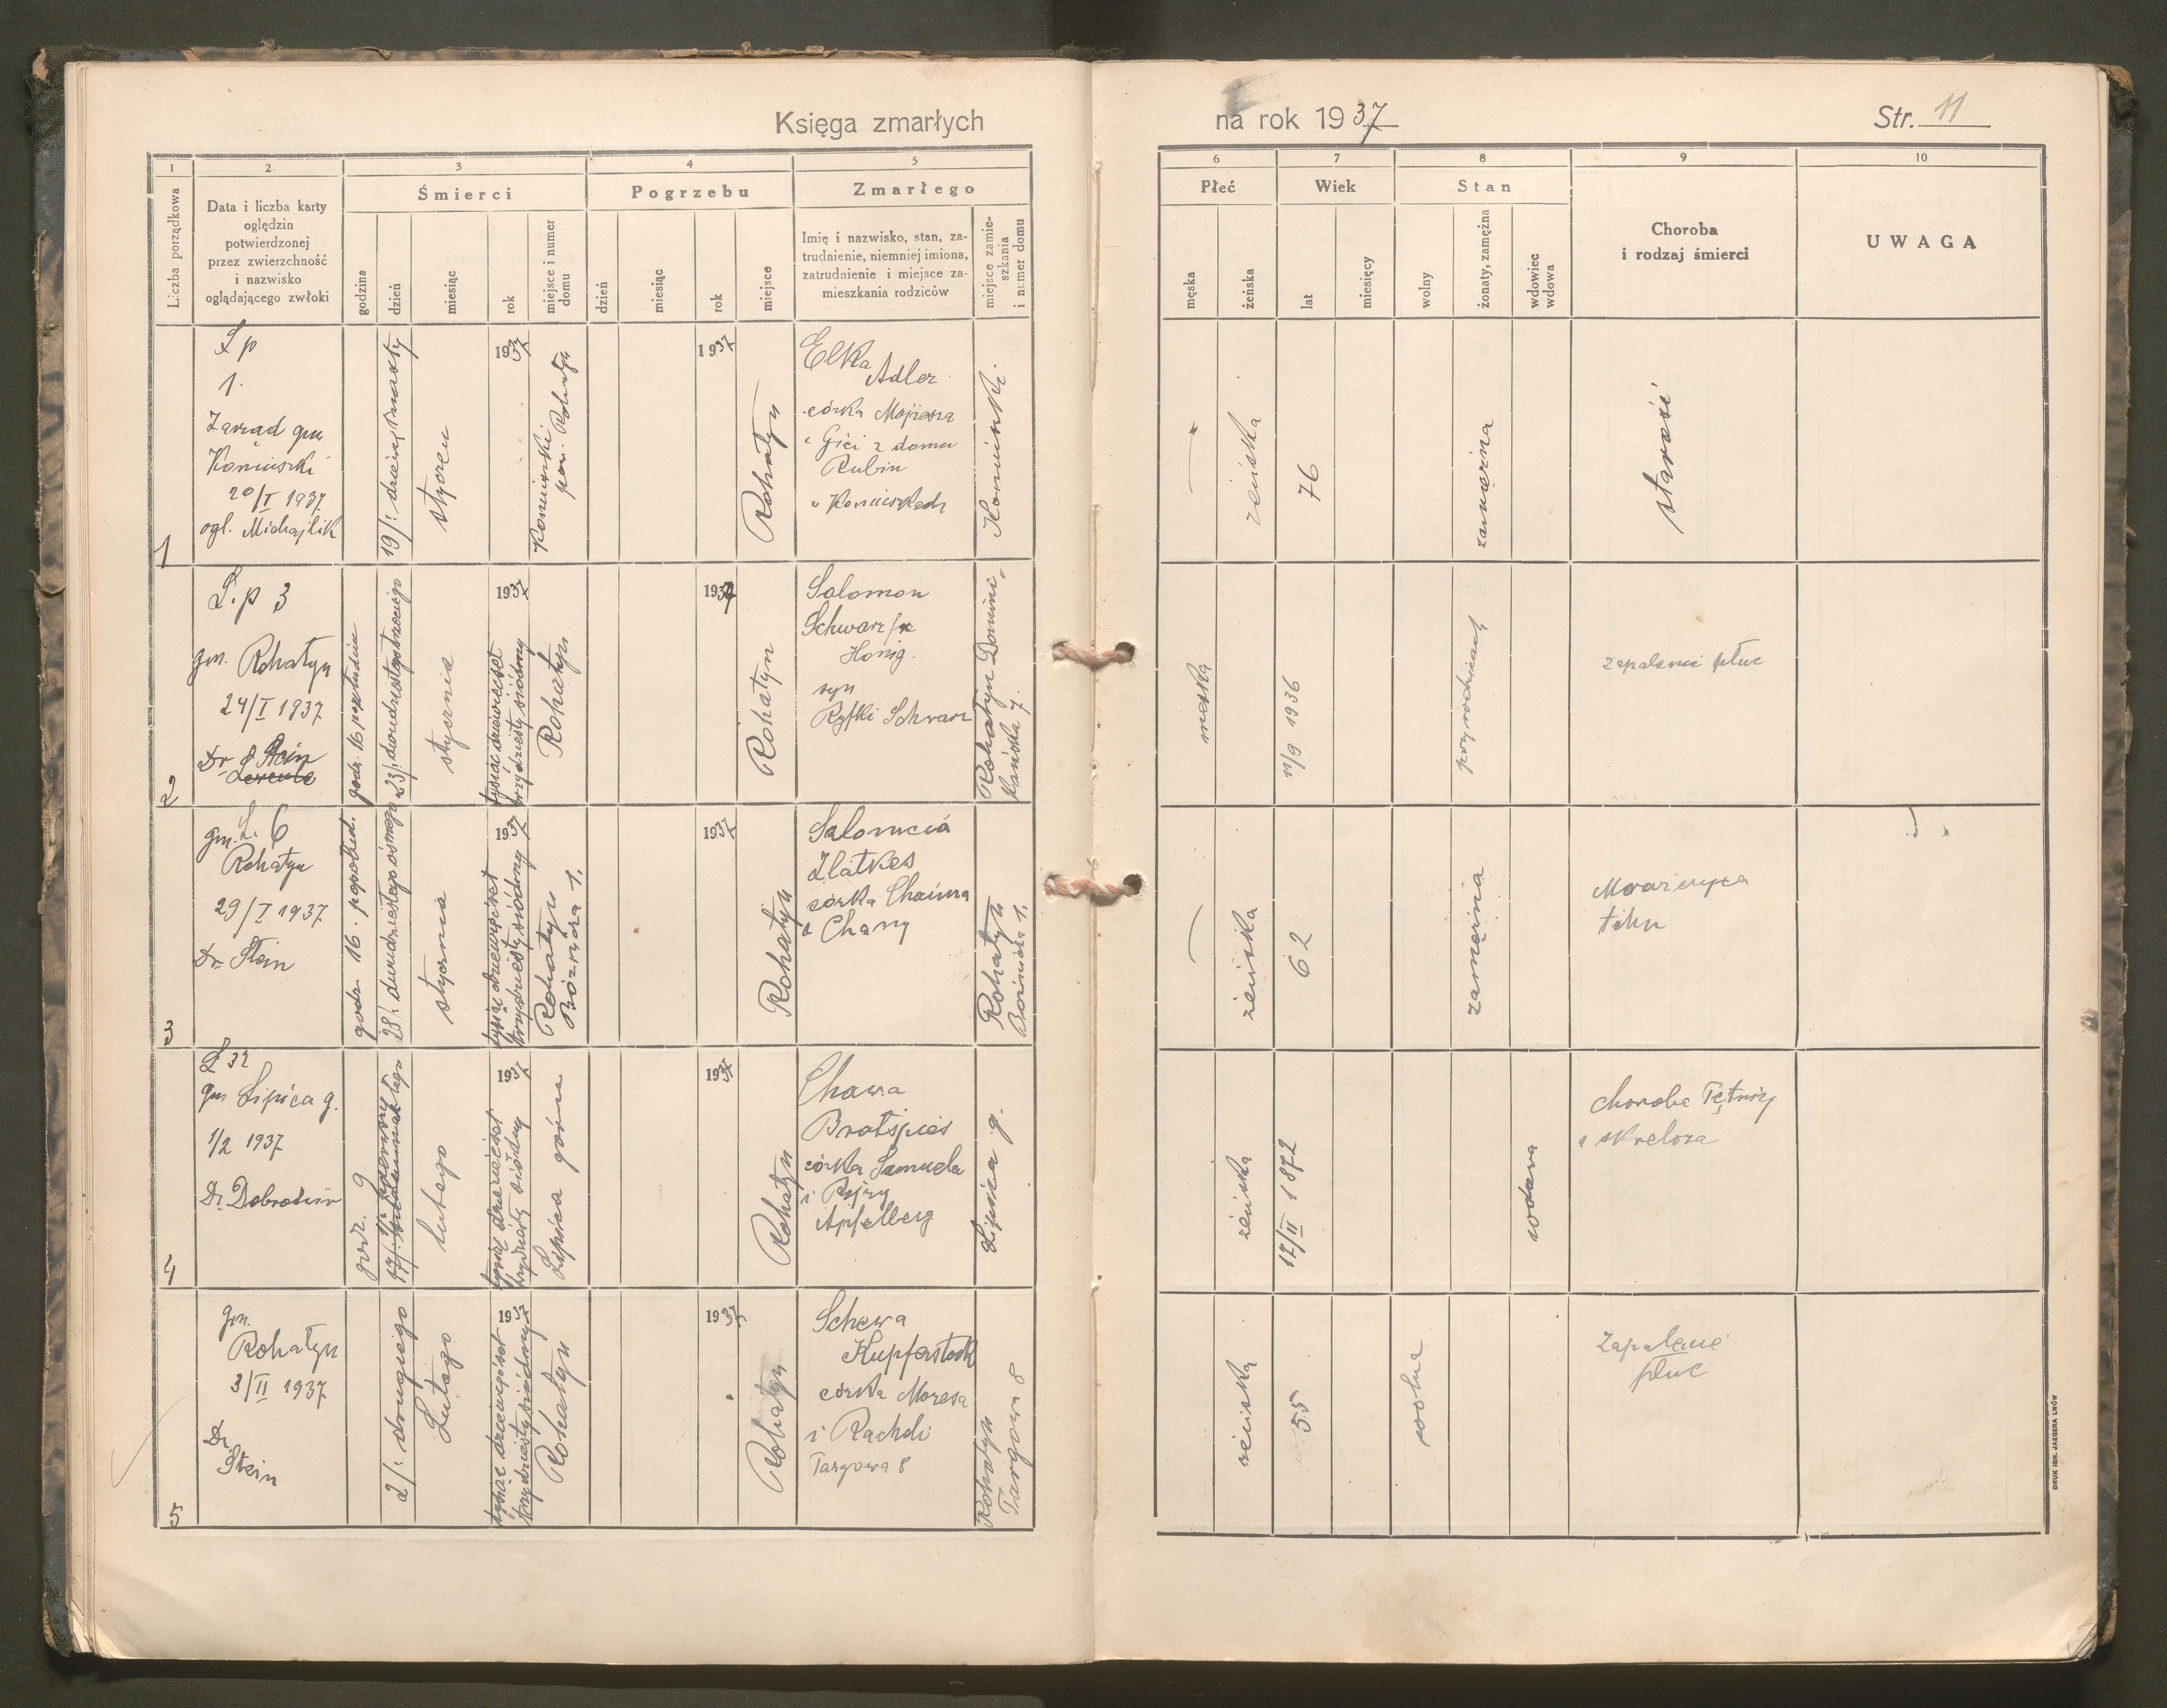 Księga zmarłych
na rok 1937
Str. 11
1
2
3
4
5
6
7
8
9
10
Liczba porządkowa
Data i liczba karty
oględzin
potwierdzonej
przez zwierzchność
i nazwisko
oglądającego zwłoki
Śmierci
godzina
dzień
miesiąc
rok
miejsce i numer
domu
Pogrzebu
dzień
miesiąc
rok
miejsce
Zmarłego
Imię i nazwisko, stan, za-
trudnienie, niemniej imiona,
zatrudnienie i miejsce za-
mieszkania rodziców
miejsce zamie-
szkania
i numer domu
Płeć
męska
żeńska
Wiek
lat
miesięcy
Stan
wolny
żonaty, zamężna
wdowiec
wdowa
Choroba
i rodzaj śmierci
UWAGA
1
L p
1.
Zarząd gm.
Koniuszki
20/I 1937
ogl. Michajlik
19/: dziewiętnasty
styczeń
1937
Koniuszki
pow. Rohatyn
1937
Rohatyn
Elka
Adler
córka Mojżesza
i Gici z domu
Rubin
w Koniuszkach
Koniuszki
żeńska
76
zamężna
starość
2
L. p 3
gm. Rohatyn
24/I 1937
Dr Stein
godz. 16 popołudniu
23/: dwudziestegotrzeciego
stycznia
1937
tysiąc dziewięćset
trzydziesty siódmy
Rohatyn
1937
Rohatyn
Salomon
Schwarz
Honig
syn
Ryfki Schwarz
Rohatyn Domini-
kańska 7.
męska
11/9 1936
zapalenie płuc
3
gm. L. 6
Rohatyn
29/I 1937
Dr. Stein
godz. 16. popołud.
28/: dwudziestego ósmego
stycznia
1937
tysiąc dziewięćset
trzydziesty siódmy
Rohatyn
Bóżnicza 1.
1937
Rohatyn
Salomcia
Zlatkes
córka Chaima
i Chany
Rohatyn
żeńska
62
zamężna
4
L 32
gm Lipica g.
1/2 1937
godz. 9
lutego
1937
tysiąc dziewięćset
trzydziesty siódmy
Lipica górna
1937
Rohatyn
Chawa
Bratspies
córka Samuela
i Rojzy
Apfelberg
Lipica g.
żeńska
12/II 1872
wdowa
choroba Tętnicy
i skleroza
5
gm.
Rohatyn
3/II 1937
Dr.
Stein
2/: drugiego
Lutego
1937
tysiąc dziewięćset
trzydziesty siódmy
Rohatyn
1937
Rohatyn
Schewa
Kupferstock
córka Mozesa
i Racheli
Targowa 8
Rohatyn
Targowa 8
żeńska
55
wolna
Zapalenie
płuc
DRUK IGN. JAEGERA LWÓW